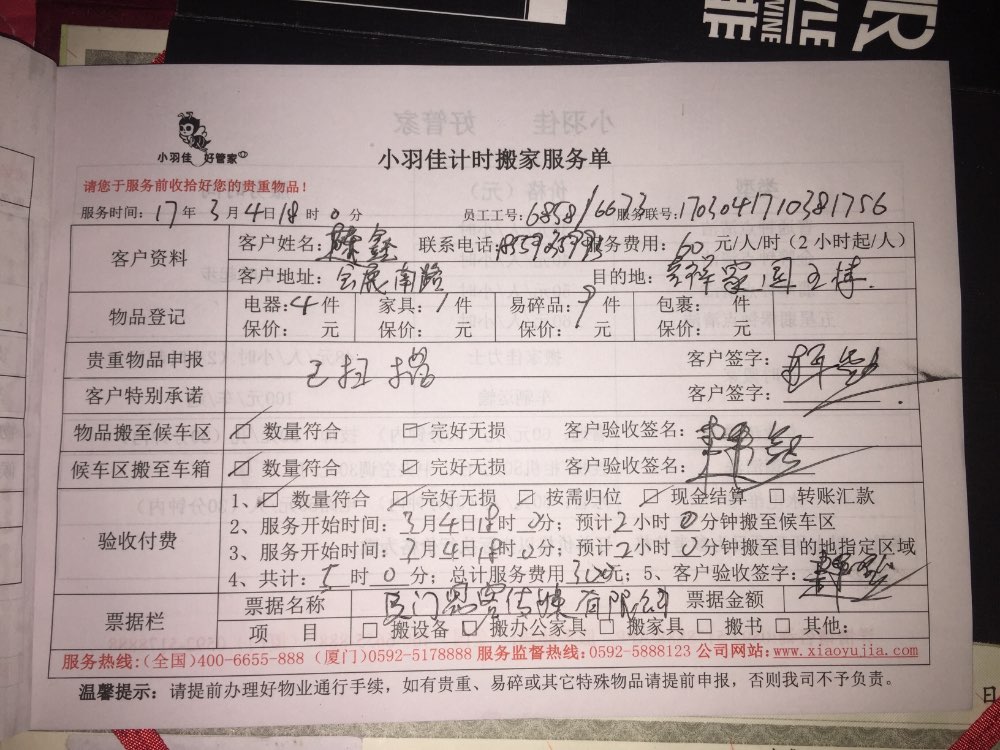 小羽佳 好管家
小羽佳计时搬家服务单
请您于服务前收拾好您的贵重物品！
服务时间：17年3月4日18时0分 员工工号：6858/6673 服务联号：1703041710381756
客户资料 客户姓名： 联系电话： 服务费用：60元/人/时（2小时起/人）
客户地址：会展南路 目的地：
物品登记 电器：4件 家具：1件 易碎品：件 包裹：件
保价：元 保价：元 保价：元 保价：元
贵重物品申报 客户签字：
客户特别承诺 客户签字：
物品搬至候车区 □ 数量符合 □ 完好无损 客户验收签名：
候车区搬至车箱 □ 数量符合 □ 完好无损 客户验收签名：
验收付费 1、□ 数量符合 □ 完好无损 □ 按需归位 □ 现金结算 □ 转账汇款
2、服务开始时间：3月4日18时0分；预计2小时0分钟搬至候车区
3、服务开始时间：3月4日18时0分；预计2小时0分钟搬至目的地指定区域
4、共计：5时0分；总计服务费用300元；5、客户验收签字：
票据栏 票据名称 有限公司 票据金额
项 目 □ 搬设备 □ 搬办公家具 □ 搬家具 □ 搬书 □ 其他：
服务热线：（全国）400-6655-888（厦门）0592-5178888 服务监督热线：0592-5888123 公司网站：www.xiaoyujia.com
温馨提示：请提前办理好物业通行手续，如有贵重、易碎或其它特殊物品请提前申报，否则我司不予负责。